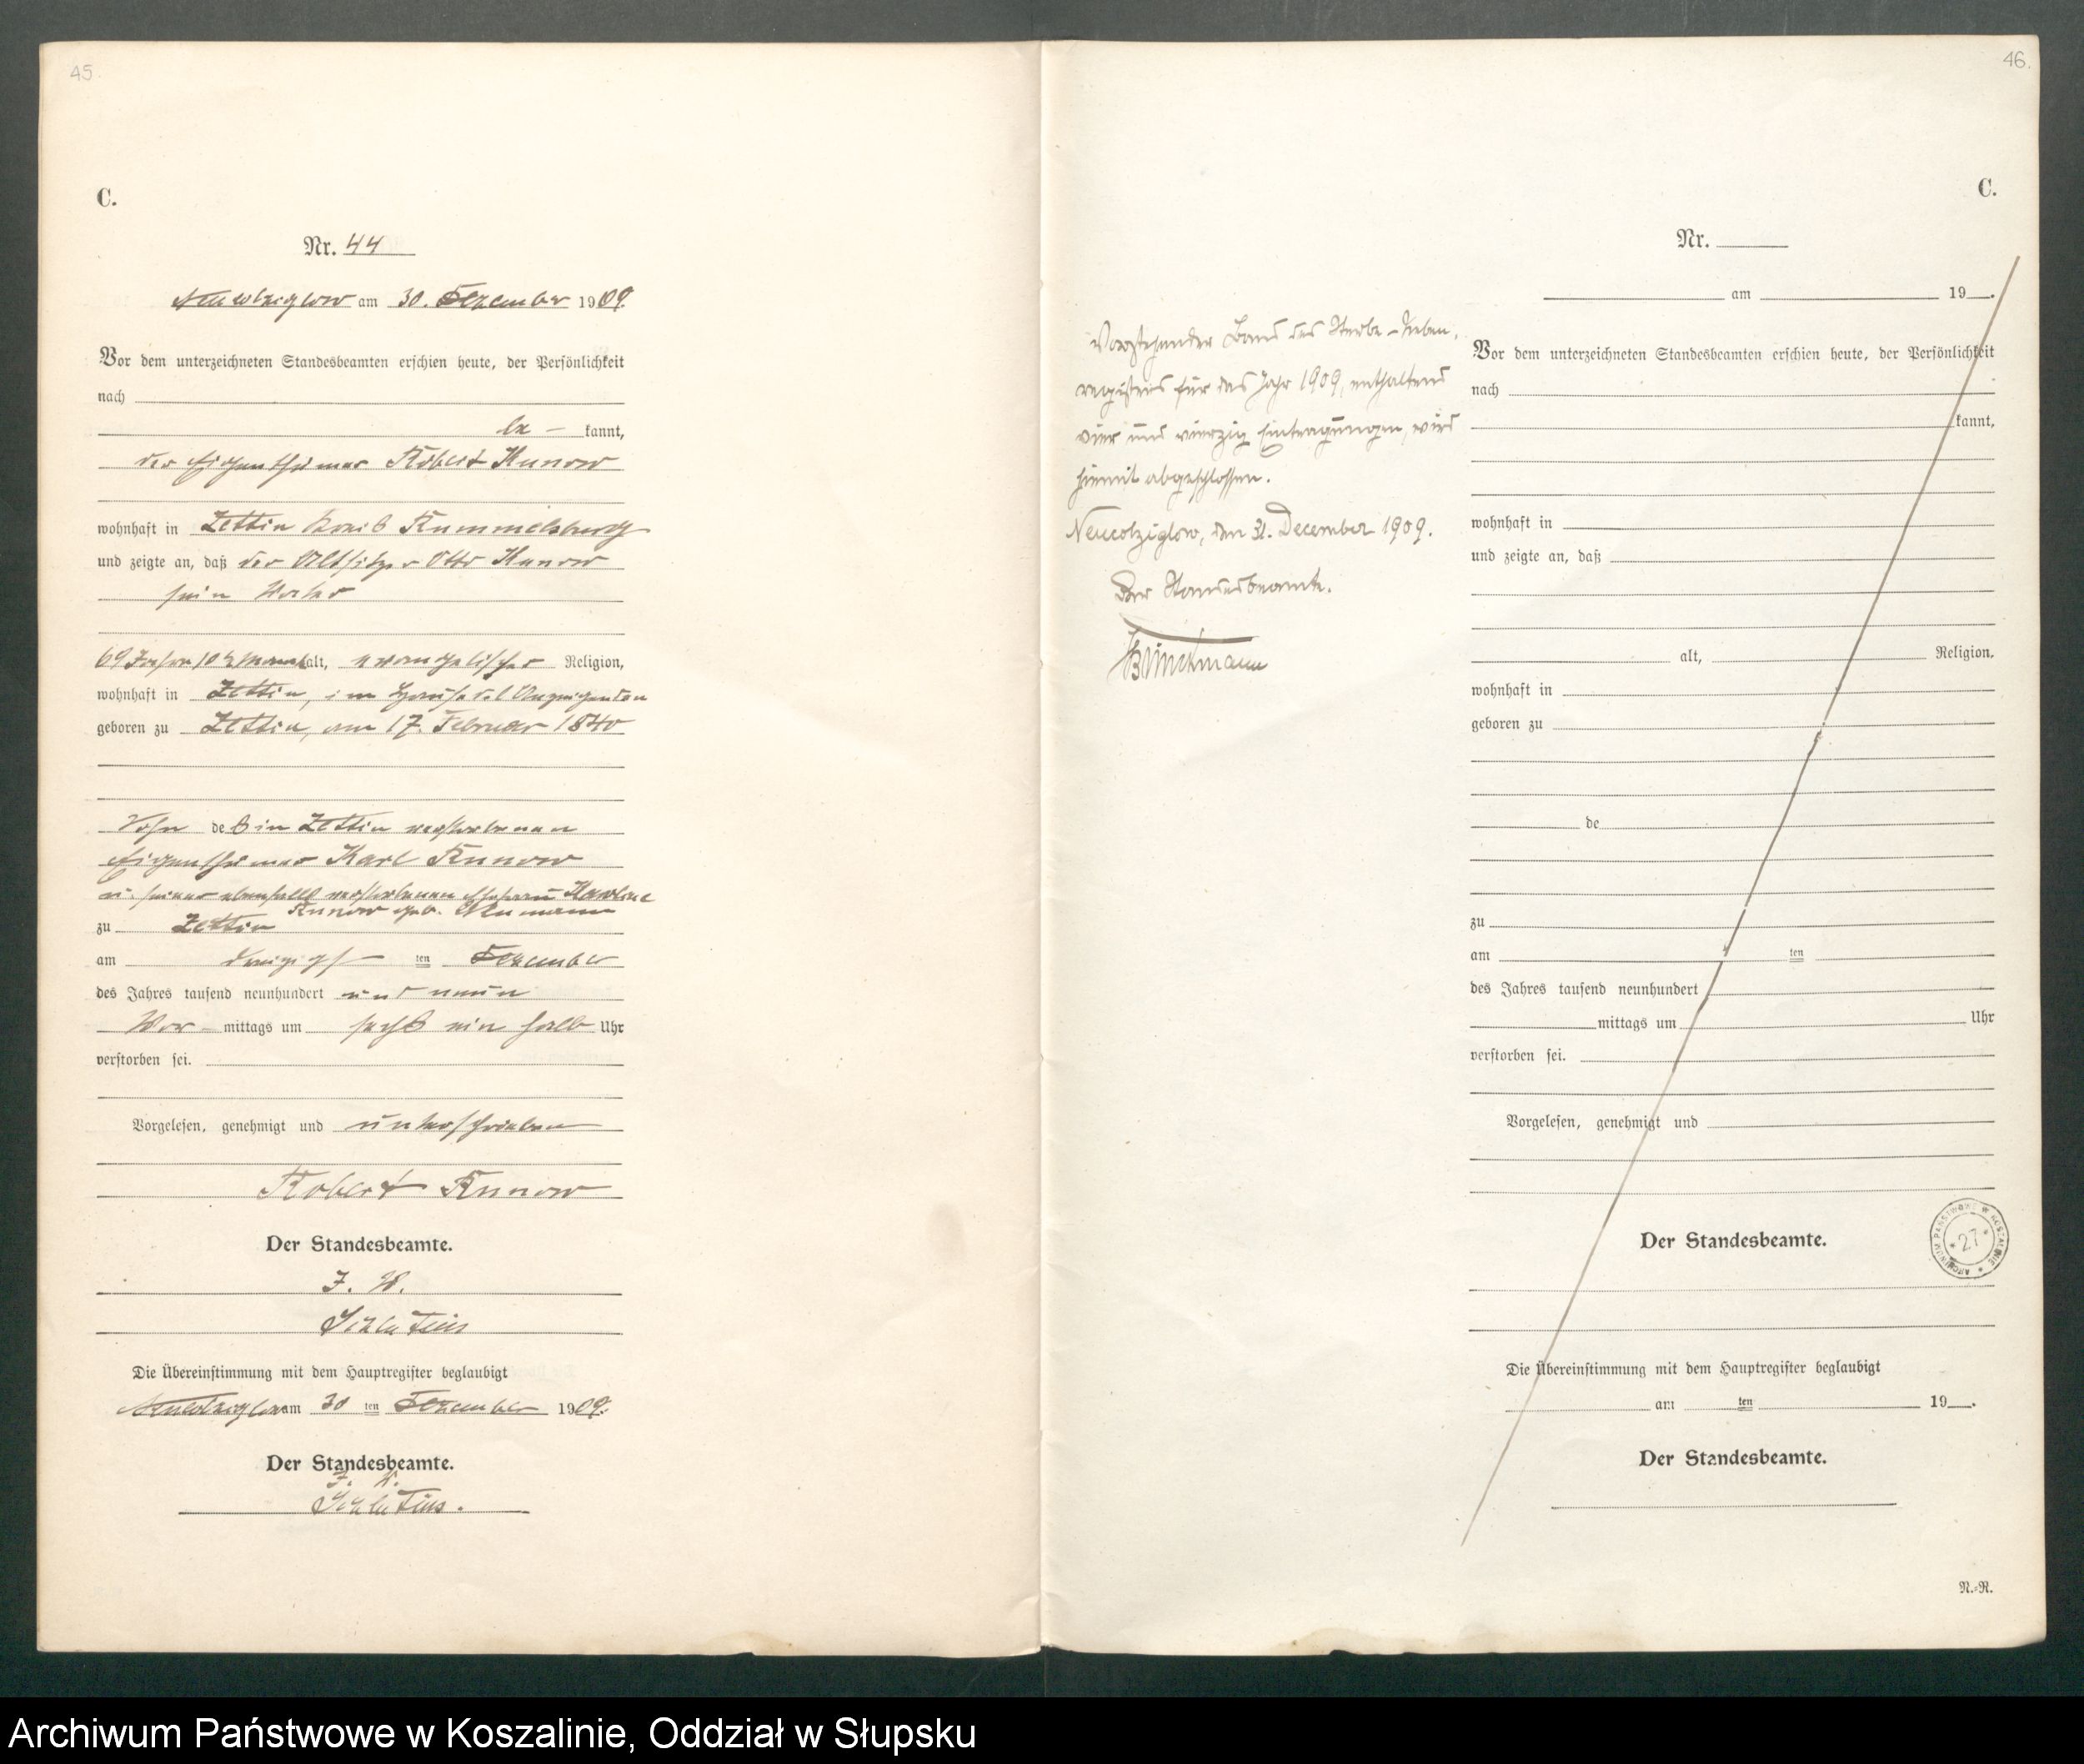 45.
C.
Nr. 44
Neucolziglow am 30. Dezember 1909.
Vor dem unterzeichneten Standesbeamten erschien heute, der Persönlichkeit
nach
be - kannt,
der Eigenthümer Robert Kunow
wohnhaft in Zettin Kreis Rummelsburg
und zeigte an, daß der Altsitzer Otto Kunow
sein Vater
69 Jahre 10 ½ Monat alt, evangelischer Religion,
wohnhaft in Zettin, im Hause des Anzeigenden
geboren zu Zettin, am 17. Februar 1840
Sohn des in Zettin verstorbenen
Eigenthümer Karl Kunow
u. seiner ebenfalls verstorbenen Ehefrau Karline
Kunow geb. Neumann
zu Zettin
am dreizigst ten Dezember
des Jahres tausend neunhundert und neun
Vor - mittags um sechs ein halb Uhr
verstorben sei.
Vorgelesen, genehmigt und unterschrieben
Robert Kunow
Der Standesbeamte.
I. V.
Die Übereinstimmung mit dem Hauptregister beglaubigt
Neucolziglow am 30 ten Dezember 1909.
Der Standesbeamte.
I. V.
46.
C.
Vorstehender Band des Sterbe-Neben-
registers für das Jahr 1909, enthaltend
vier und vierzig Eintragungen, wird
hiermit abgeschlossen.
Neucolziglow, den 31. December 1909.
Der Standesbeamte.
Brinckmann
Nr.
am 19 .
Vor dem unterzeichneten Standesbeamten erschien heute, der Persönlichkeit
nach
kannt,
wohnhaft in
und zeigte an, daß
alt, Religion,
wohnhaft in
geboren zu
de
zu
am ten
des Jahres tausend neunhundert
mittags um Uhr
verstorben sei.
Vorgelesen, genehmigt und
Der Standesbeamte.
ARCHIWUM PAŃSTWOWE W KOSZALINIE
27
Die Übereinstimmung mit dem Hauptregister beglaubigt
am ten 19 .
Der Standesbeamte.
N.-R.
Archiwum Państwowe w Koszalinie, Oddział w Słupsku